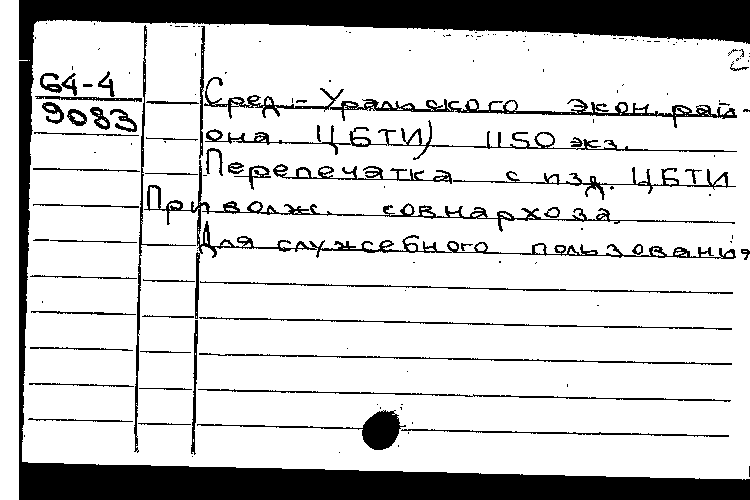 2
64-4
9083
Сред-Уральского экон. рай-
она. ЦБТИ) 1150 экз.
Перепечатка с изд. ЦБТИ
Приволж. совнархоза.
Для служебного пользования